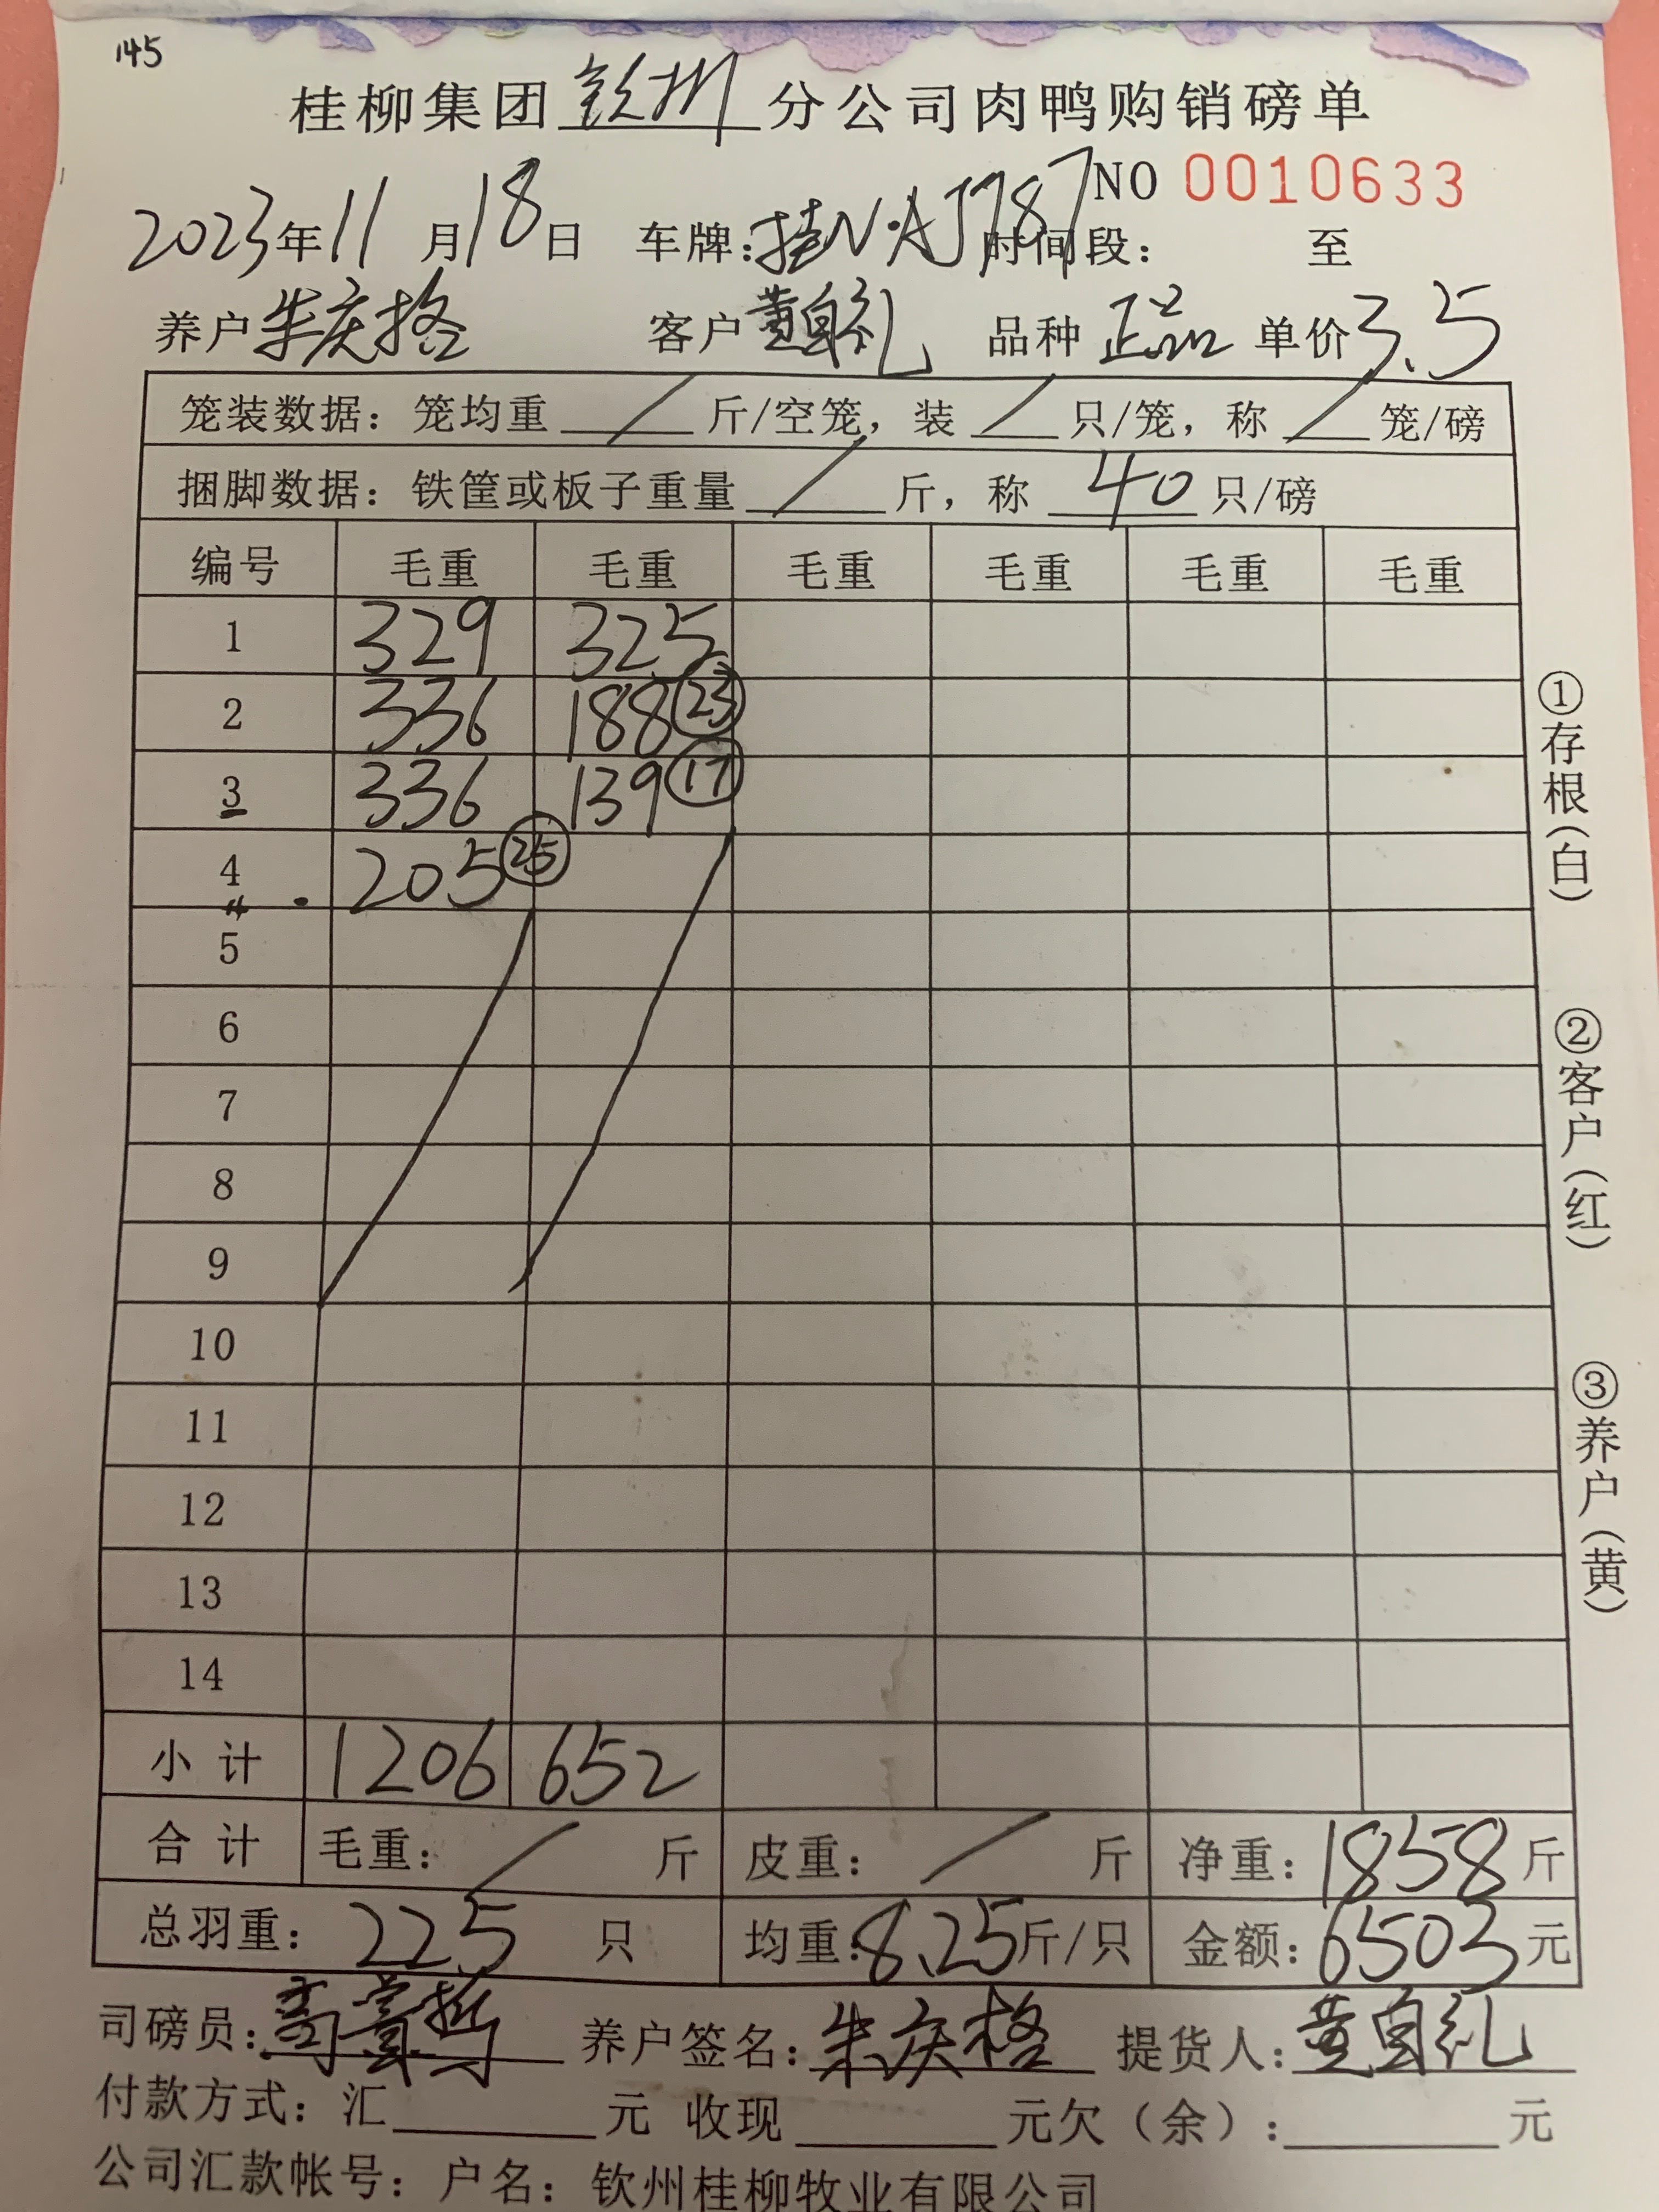 145
桂柳集团钦州分公司肉鸭购销磅单
NO 0010633
2023年11月18日 车牌:桂N·AJ787 时间段: 至
养户朱庆格 客户黄自礼 品种正品 单价3.5
笼装数据: 笼均重 / 斤/空笼, 装 / 只/笼, 称 / 笼/磅
捆脚数据: 铁筐或板子重量 / 斤, 称 40 只/磅
编号 毛重 毛重 毛重 毛重 毛重 毛重
1 329 325
2 336 188 ㉓
3 336 139 ⑰
4 205 ㉕
5
6
7
8
9
10
11
12
13
14
小计 1206 652
合计 毛重: / 斤 皮重: / 斤 净重: 1858斤
总羽重: 225 只 均重:8.25斤/只 金额:6503元
司磅员: 养户签名:朱庆格 提货人:黄自礼
付款方式: 汇 元 收现 元欠(余): 元
公司汇款帐号: 户名: 钦州桂柳牧业有限公司
①存根(白)
②客户(红)
③养户(黄)